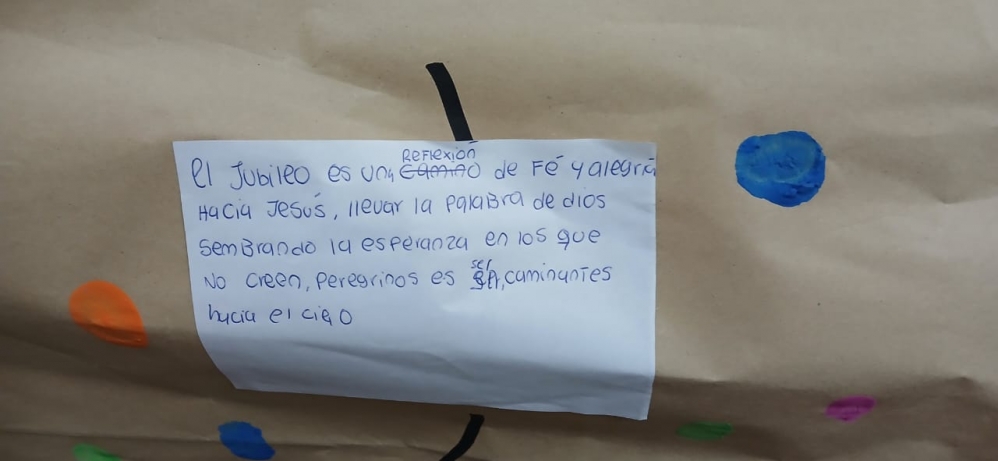 El Jubileo es una Reflexión de Fé y alegría
Hacia Jesús, llevar la palabra de dios
sembrando la esperanza en los que
No creen, peregrinos es ser, caminantes
hacia el cielo